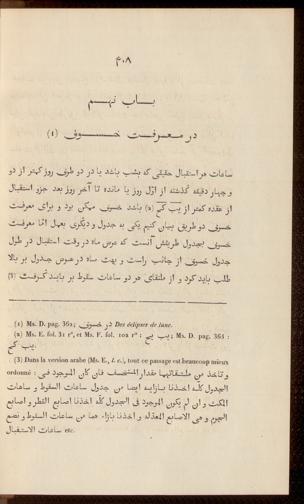 ۴۰۸
بــاب نهــم
در معــرفــت خســوف (1)
ساعات هر استقبال حقیقی که بشب باشد یا در دو طرف روز کمتر از دو
و چهار دقیقه گذشته از اوّل روز یا مانده تا آخر روز بعد جزو استقبال
از عقده کمتر از یب کح (2) باشد خسوف ممکن بود و برای معرفت
خسوف دو طریق بیان کنیم یکی به جدول و دیگری بعمل امّا معرفت
خسوف بجدول طریقش آنست که عرض ماه در وقت استقبال در طول
جدول خسوف از جانب راست و بهت ماه در عرض جدول بر بالا
طلب باید کرد و از ملتقای هر دو ساعات سقوط بر باید گرفت (3)
(1) Ms. D. pag. 362; در خسوف Des éclipses de lune.
(2) Ms. E. fol. 31 r°, et Ms. F. fol. 102 r° : یب یح ; Ms. D. pag. 363 :
یب کح.
(3) Dans la version arabe (Ms. E., l. c.), tout ce passage est beaucoup mieux
ordonné : وناخذ من ملتقائهما مقدار المنخسف فان كان الموجود فى
الجدول كلّه اخذنا بازايه ايضا من جدول ساعات السقوط و ساعات
المكث و ان لم يكون الموجود فى الجدول كلّه اخذنا اصابع القطر و اصابع
الجروم و هى الاصابع المعدّله و اخذنا بازاء هما من ساعات السقوط و نضع
ساعات الاستقبال etc.